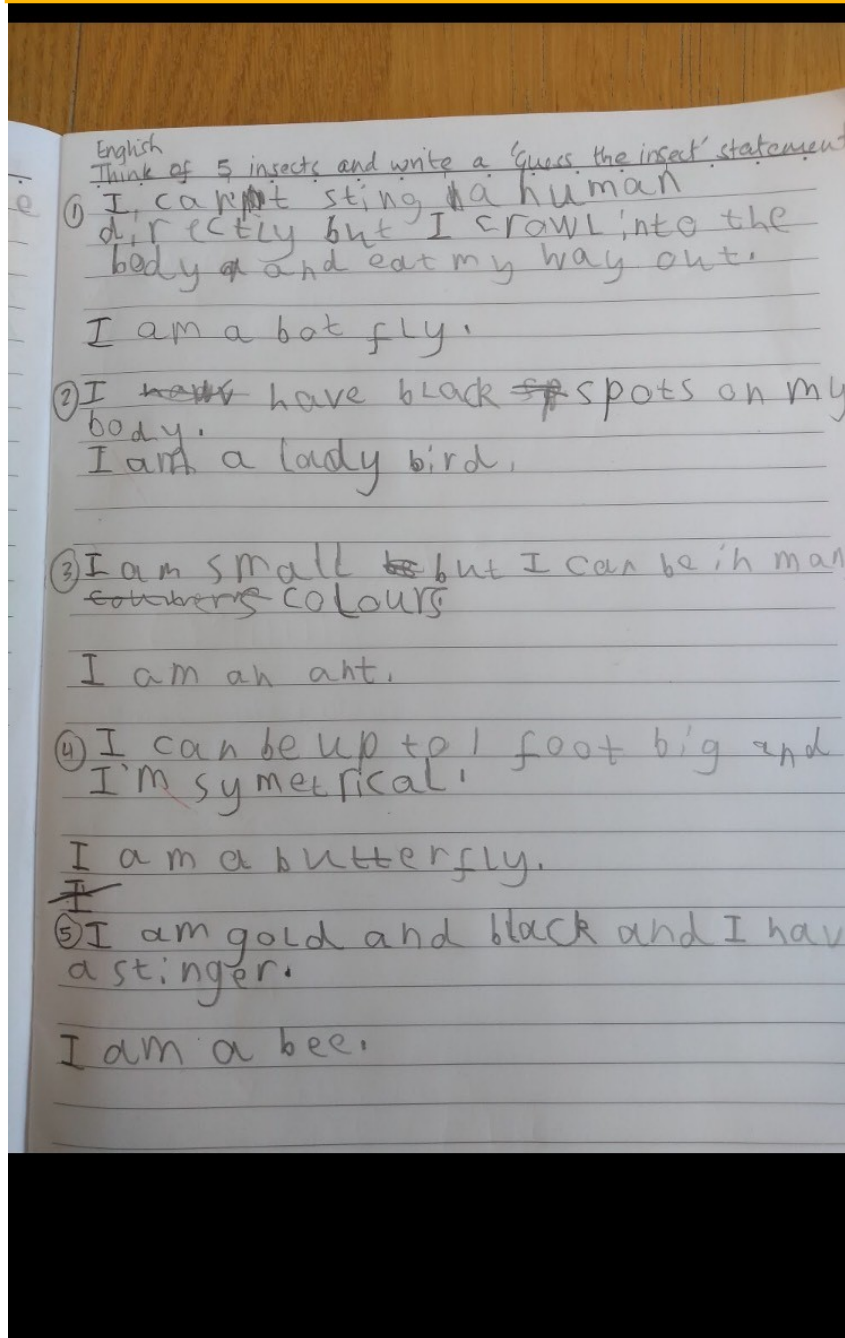 English
Think of 5 insects and write a 'Guess the insect' statement
① I can't sting a human
directly but I crawl into the
body and eat my way out.
I am a bot fly.
② I have black spots on my
body.
I am a lady bird.
③ I am small but I can be in man
colours
I am an ant.
④ I can be up to 1 foot big and
I'm symetrical.
I am a butterfly.
⑤ I am gold and black and I hav
a stinger.
I am a bee.
e